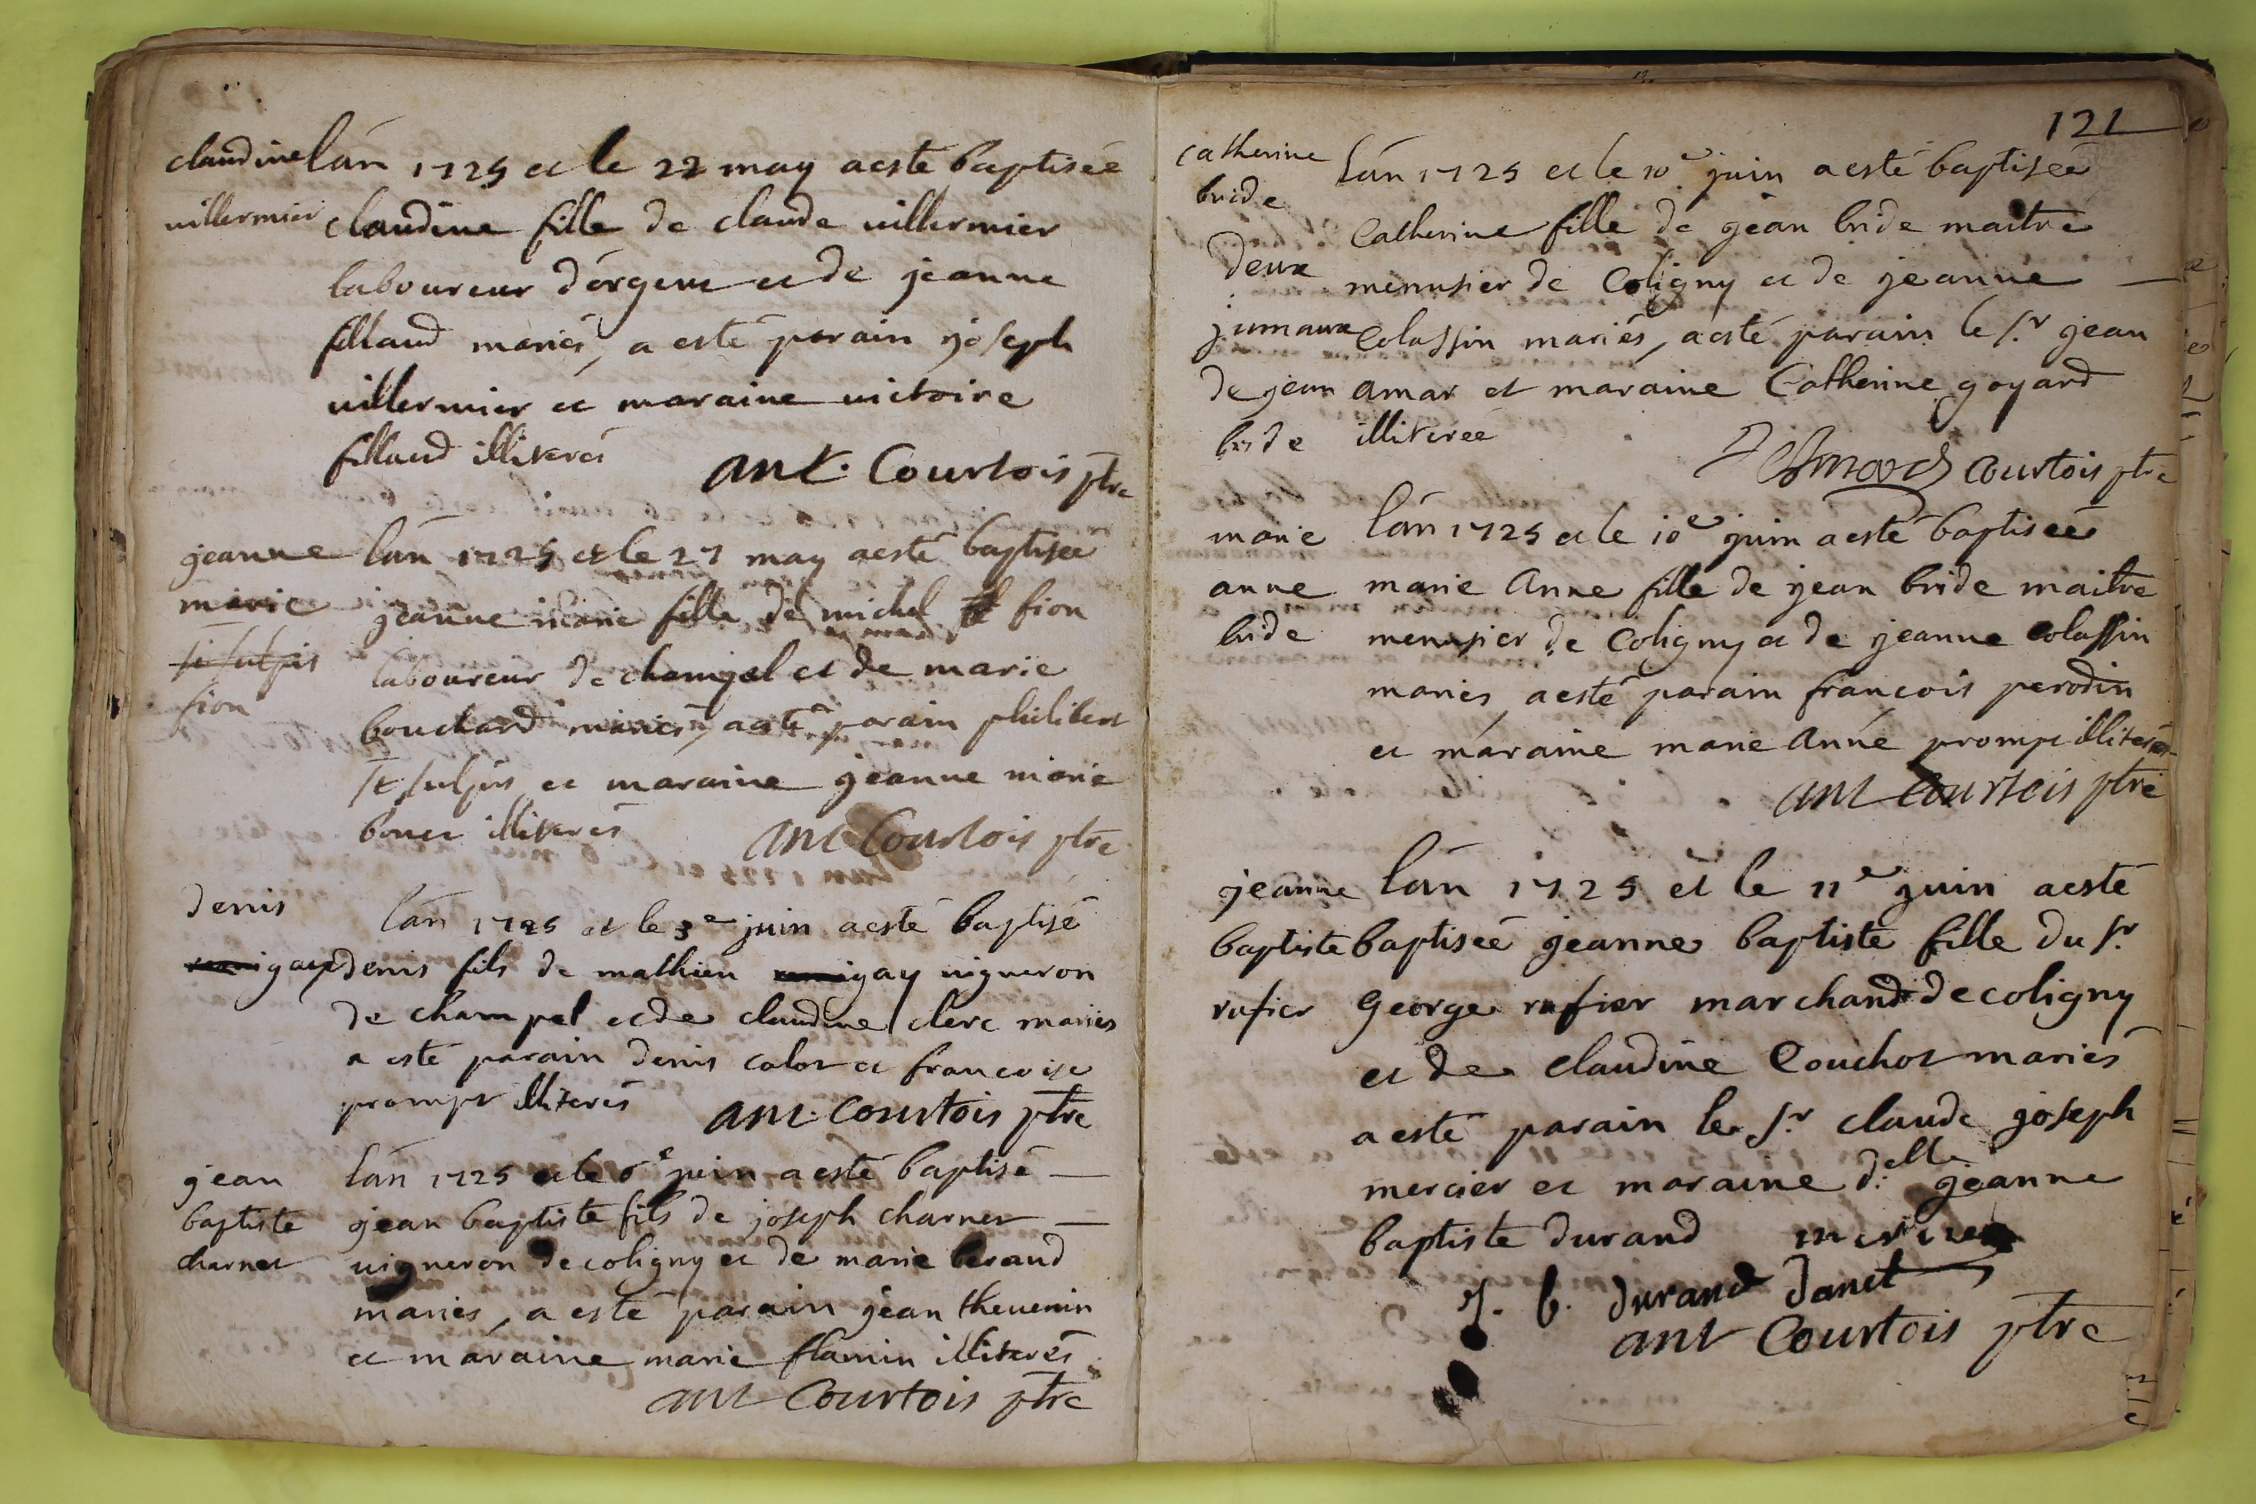 claudine lán 1725 et le 22 may aesté baptiseé
villermier claudine fille de claude villermier
laboureur dórgeur et de jeanne
fillaud mariés, a esté parain joseph
villermier et maraine victoire
fillaud illiterés
ant. Courtois ptre
jeanne lán 1725 et le 27 may aesté baptisee
marie jeanne marie fille de michel fion
st sulpis laboureur de champel et de marie
fion bouchard mariés, aesté parain philibert
st sulpis et maraine jeanne marie
bouer illiterés
ant Courtois ptre
denis lán 1725 et le 3e juin aesté baptisé
gay denis fils de mathieu gay vigneron
de champel et de claudine clerc mariés
a esté parain denis calot et francoise
prompt illiterés ant. Courtois ptre
jean lán 1725 et le 6e juin aesté baptisé
baptiste jean baptiste fils de joseph charnet
charnet vigneron de coligny et de marie beraud
mariés, a esté parain jean thevenin
et maraine marie flamin illiterés
ant Courtois ptre
121
catherine lán 1725 et le 10e juin aesté baptiseé
bride Catherine fille de jean bride maitre
deux menusier de Coligny et de jeanne
jumaux Colassin mariés, aesté parain le sr jean
de jean amar et maraine Catherine goyard
bride illitereé
Courtois ptre
marie lán 1725 et le 10e juin aesté baptiseé
anne marie Anne fille de jean bride maitre
bride menusier de Coligny et de jeanne colassin
mariés, aesté parain françois perodin
et maraine marie Anne prompt illiterés
ant Courtois ptre
jeanne lán 1725 et le 11e juin aesté
baptiste baptiseé jeanne baptiste fille du sr
rufier George rufier marchand de coligny
et de claudine Couchot mariés
aesté parain le sr claude joseph
mercier et maraine d.elle jeanne
baptiste durand mercier
J. b. durand Janet
ant Courtois ptre